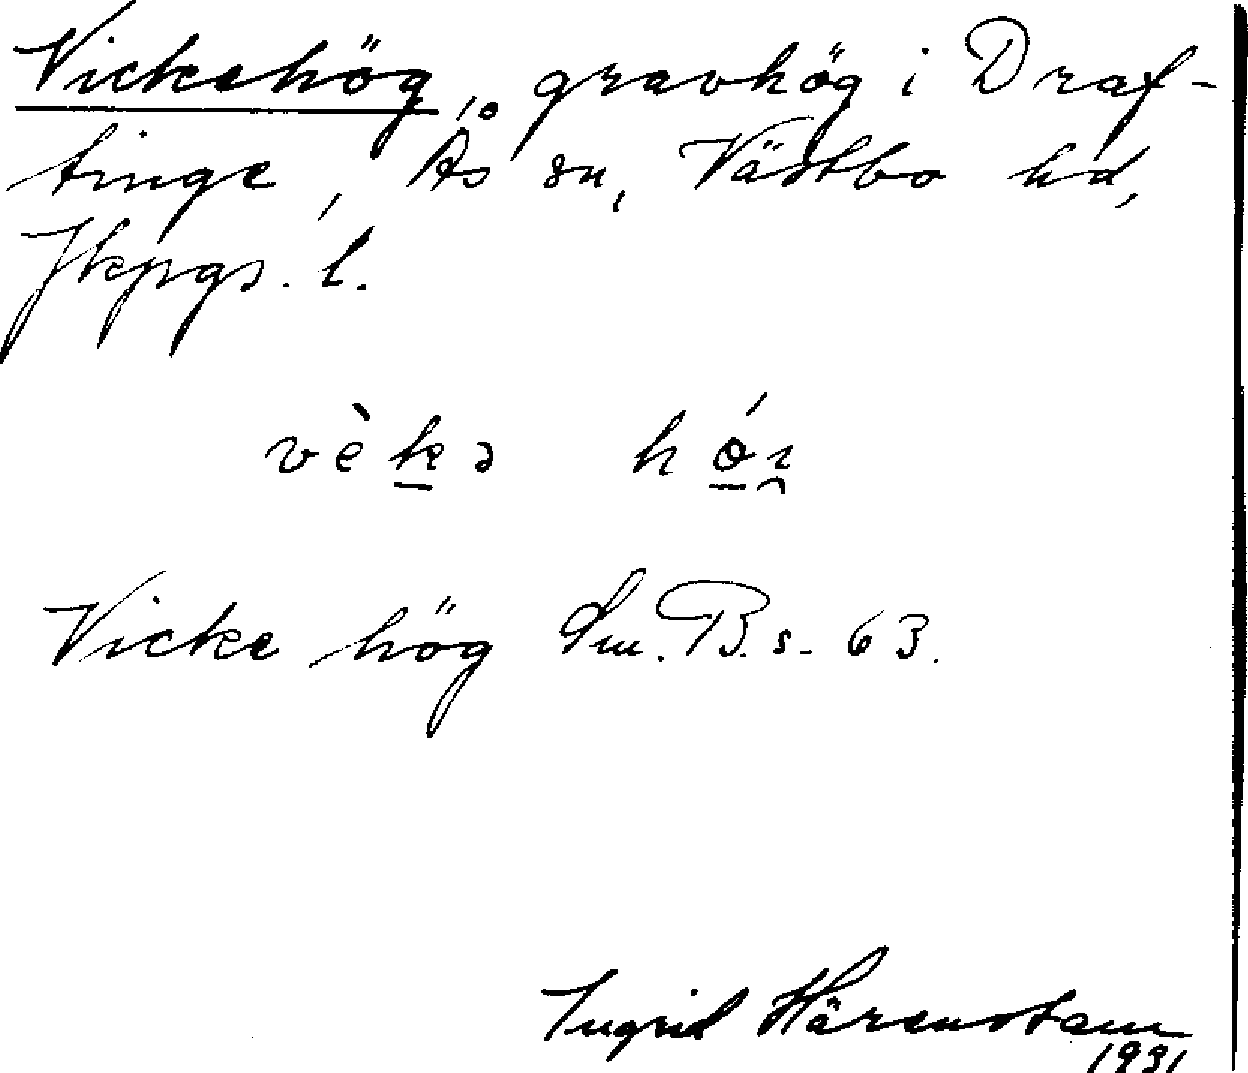 Vickehög, gravhög i Draf-
tinge, Ås sn, Västbo hd,
Jkpgs. l.
vèkə hǿi̯
Vicke hög Sm. B. s. 63.
Ingrid Härenstam
1931